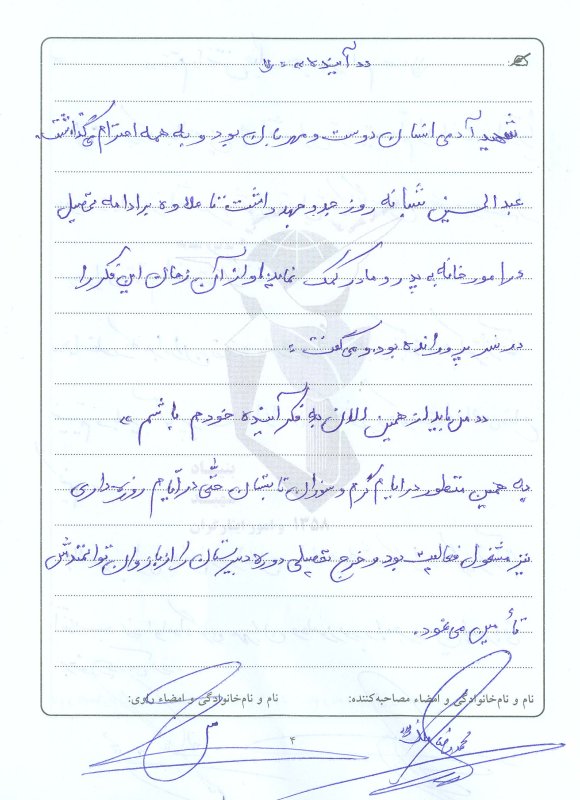 «آینده»
شهید آدمی انسان دوست و مهربان بود و به همه احترام می‌گذاشت.
عبدالحسین شبانه روز جد و جهد داشت تا علاوه بر ادامه تحصیل
در امور خانه به پدر و مادر کمک نماید او از آن زمان این فکر را
در سر پرورانده بود و می‌گفت:
«من باید از همین الان به فکر آینده خودم باشم»
به همین منظور در ایام گرم و سوزان تابستان حتّی در ایّام روزه‌داری
نیز مشغول فعالیت بود و خرج تحصیلی دوره دبیرستان را از بازوان توانمندش
تأمین می‌نمود.
نام و نام‌خانوادگی و امضاء مصاحبه‌کننده:
نام و نام‌خانوادگی و امضاء راوی:
محمدرضا
۴
بنیاد
۱۳۵۸
و امور ایثارگران